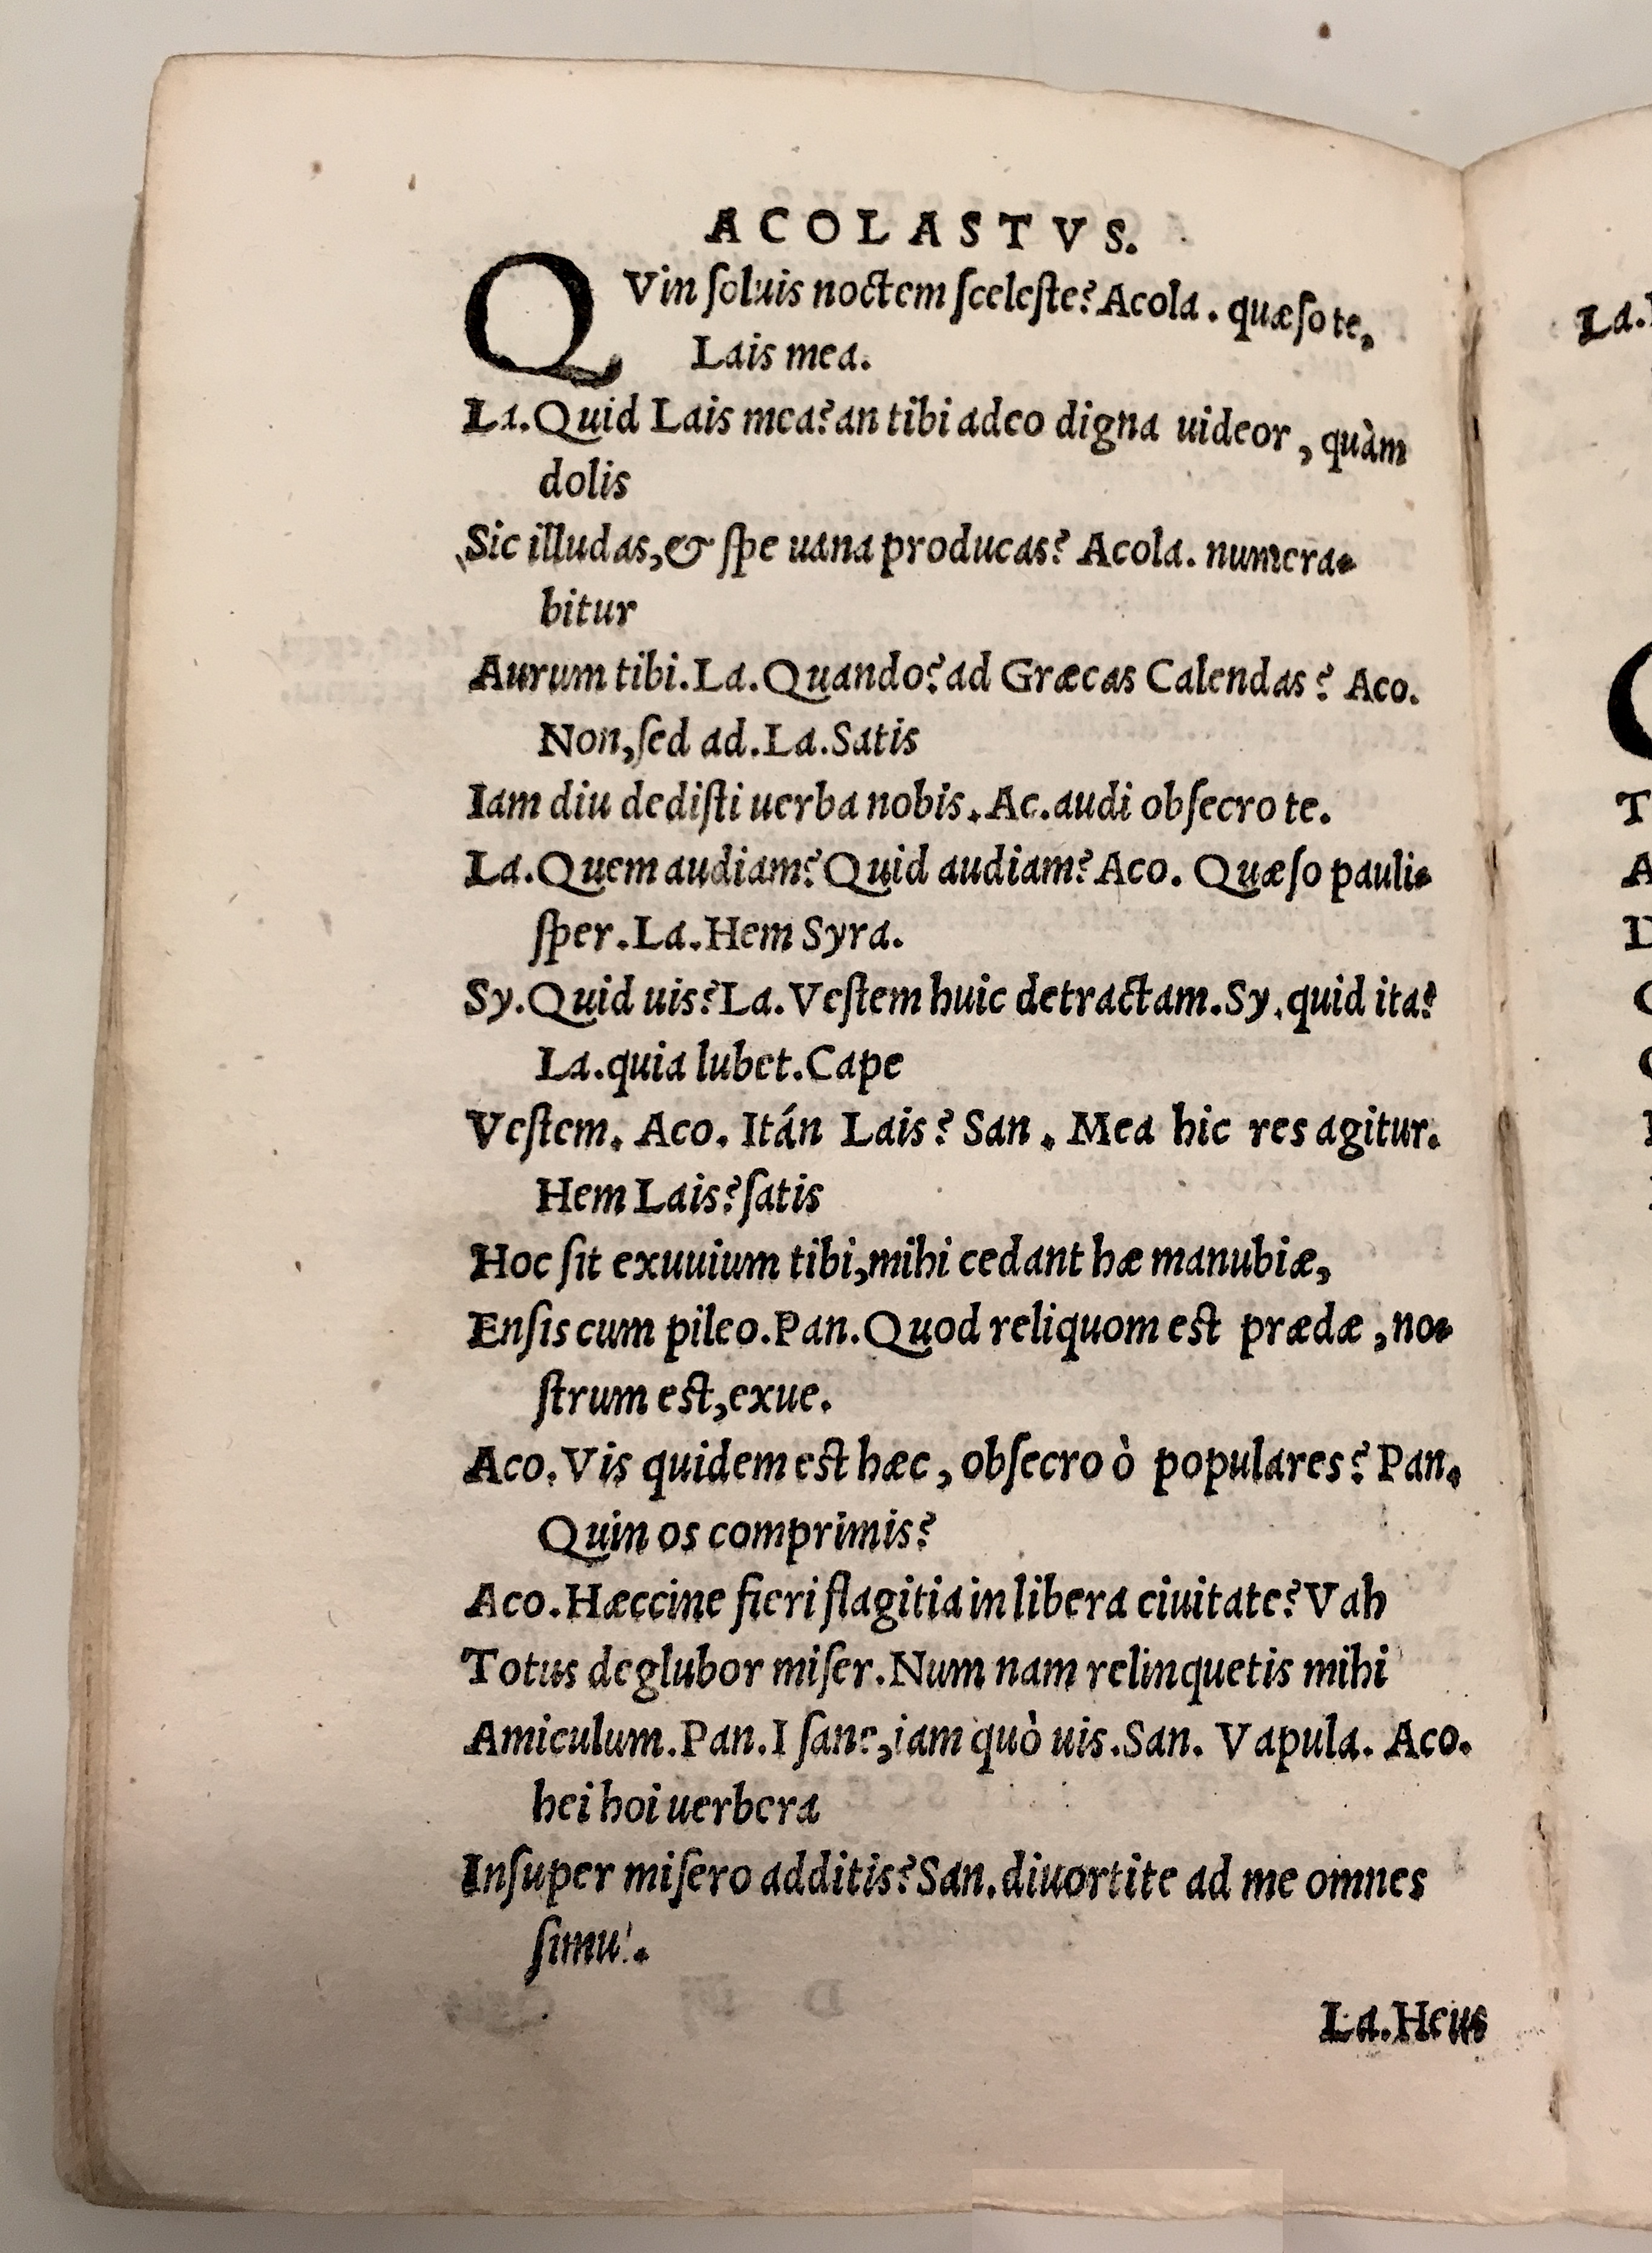 ACOLASTVS.
QVin ſoluis noctem ſceleſte? Acola. quæſo te,
Lais mea.
La. Quid Lais mea? an tibi adeo digna uideor, quàm
dolis
Sic illudas, & ſpe uana producas? Acola. numera-
bitur
Aurum tibi. La. Quando? ad Græcas Calendas? Aco.
Non, ſed ad. La. Satis
Iam diu dediſti uerba nobis. Ac. audi obſecro te.
La. Quem audiam? Quid audiam? Aco. Quæſo pauli-
ſper. La. Hem Syra.
Sy. Quid uis? La. Veſtem huic detractam. Sy. quid ita?
La. quia lubet. Cape
Veſtem. Aco. Itán Lais? San. Mea hic res agitur.
Hem Lais? ſatis
Hoc ſit exuuium tibi, mihi cedant hæ manubiæ,
Enſis cum pileo. Pan. Quod reliquom eſt prædæ, no-
ſtrum eſt, exue.
Aco. Vis quidem eſt hæc, obſecro ò populares? Pan.
Quin os comprimis?
Aco. Hæccine fieri flagitia in libera ciuitate? Vah
Totus deglubor miſer. Num nam relinquetis mihi
Amiculum. Pan. I ſane, iam quò uis. San. Vapula. Aco.
hei hoi uerbera
Inſuper miſero additis? San. diuortite ad me omnes
ſimul.
La. Heus
La.
T
A